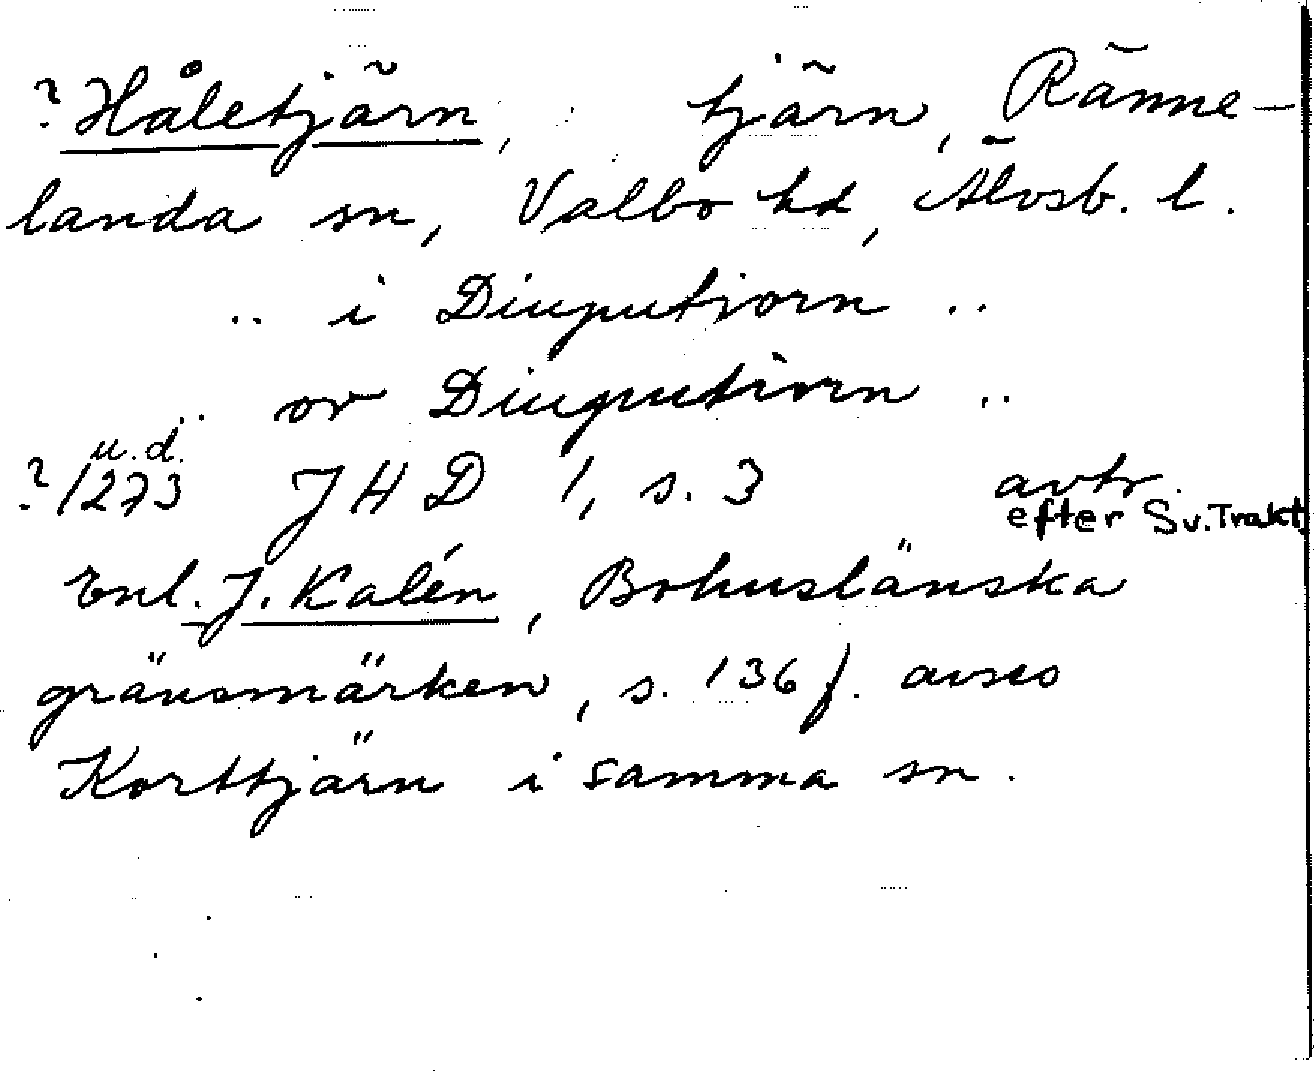 ? Håletjärn, tjärn, Ränne-
landa sn, Valbo hd, Älvsb. l.
.. i Diuputjorn ..
.. or Diuputiorn ..
? u.d. /1273 JHD 1, s. 3 avtr.
efter Sv. Trakt.
Enl. J. Kalén, Bohuslänska
gränsmärken, s. 136 f. avses
Korttjärn i samma sn.